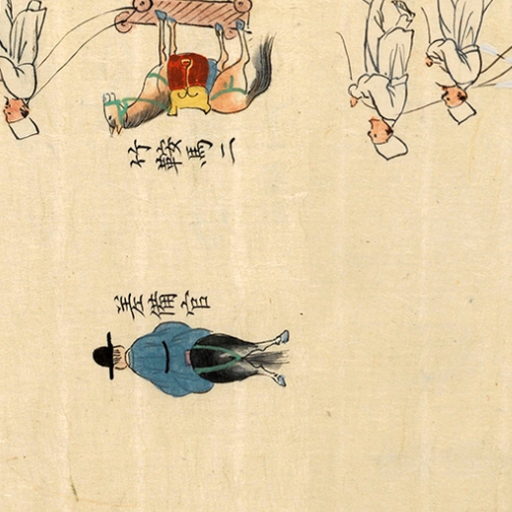 竹鞍馬二
差備官